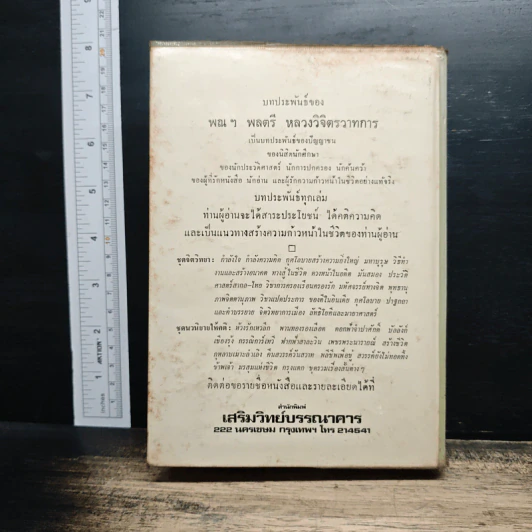 บทประพันธ์ของ
พณฯ พลตรี หลวงวิจิตรวาทการ
เป็นบทประพันธ์ของปัญญาชน
ของนิสิตนักศึกษา
ของนักประวัติศาสตร์ นักการปกครอง นักค้นคว้า
ของผู้ที่รักหนังสือ นักอ่าน และผู้รักความก้าวหน้าในชีวิตอย่างแท้จริง
บทประพันธ์ทุกเล่ม
ท่านผู้อ่านจะได้สาระประโยชน์ ได้คติความคิด
และเป็นแนวทางสร้างความก้าวหน้าในชีวิตของท่านผู้อ่าน
ชุดจิตวิทยา: กำลังใจ กำลังความคิด กุศโลบายสร้างความยิ่งใหญ่ มหาบุรุษ วิธีทำ
งานและสร้างอนาคต ทางสู้ในชีวิต ดวงหน้าในอดีต มันสมอง ประวัติ
ศาสตร์สากล-ไทย วิชาการครองเรือนครองรัก มหัศจรรย์ทางจิต พุทธานุ
ภาพจิตตานุภาพ วิชชาแปดประการ ของดีในอินเดีย กุศโลบาย ปาฐกถา
และคำบรรยาย จิตวิทยาการเมือง ลัทธิโยคีและมายาศาสตร์
ชุดนวนิยายให้คติ: ห้วงรักเหวลึก พานทองรองเลือด ดอกฟ้าจำปาศักดิ์ บัลลังก์
เชียงรุ้ง กรรณิการ์เทวี ฟากฟ้าสาละวิน เพชรพระนารายณ์ สร้างชีวิต
กุหลาบเมาะลำเลิง
ข้าพเจ้า มรสุมแห่งชีวิต กรุงแตก ชุดรวมเรื่องสั้นต่างๆ
ติดต่อขอรายชื่อหนังสือและรายละเอียดได้ที่
สำนักพิมพ์
เสริมวิทย์บรรณาคาร
222 นครเขษม กรุงเทพฯ โทร 214541